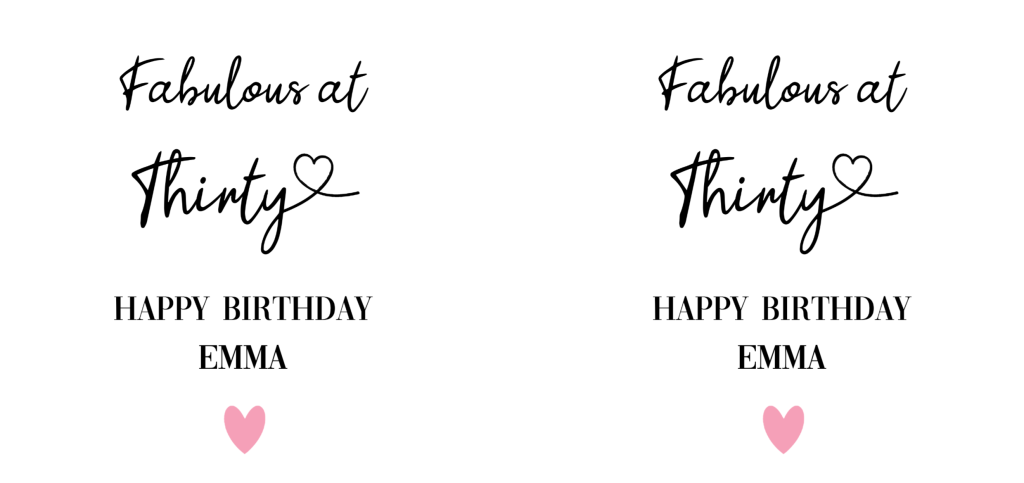 Fabulous at
Thirty
HAPPY BIRTHDAY
EMMA
Fabulous at
Thirty
HAPPY BIRTHDAY
EMMA